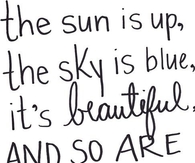 the sun is up,
the sky is blue,
it's beautiful,
AND SO ARE